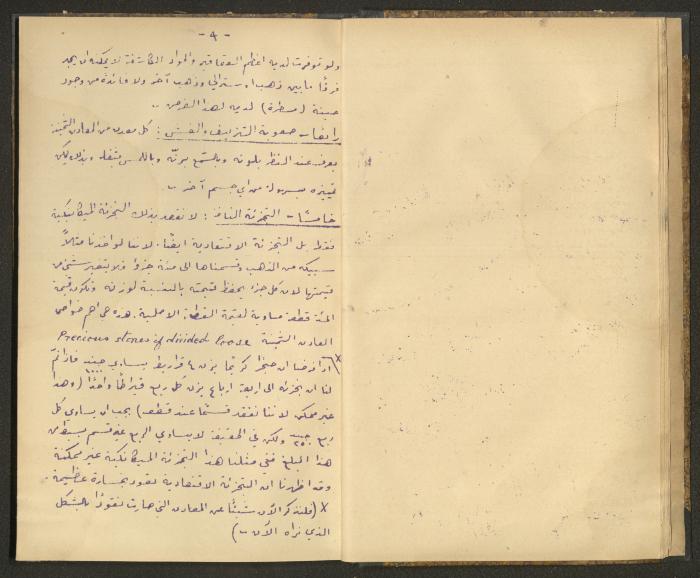 - ٩ -
ولو توفرت لديه اعظم العقاقير والمواد الكاشفة لا يمكنه ان يجد
فرقًا ما بين ذهب استرالي وذهب آخر ولا فائدة من وجود
عينة (مسطرة) لديه لهذا الغرض ..
رابعًا - صعوبة التزييف والغش : كل معدن من المعادن الثمينة
يعرف عند النظر بلونه وبالسمع برنّه وباللمس بثقله وبذلك يمكن
تمييزه بسهولة من اي جسم آخر ..
خامسًا - التجزئة النافعة : لا نقصد بذلك التجزئة الميكانيكية
فقط بل التجزئة الاقتصادية ايضًا. لاننا لو اخذنا مثلاً
سبيكة من الذهب وقسمناها الى مئة جزء فلا يتغير شيء من
قيمتها لان كل جزء يحفظ قيمته بالنسبة لوزنه وتكون قيمة
المئة قطعة مساوية لقيمة القطعة الاصلية. هذه هي اهم خواص
المعادن الثمينة Precious stones if divided loose
x اذا فرضنا ان حجرًا كريمًا يزن ٤ قراريط يساوي ١٠٠ جنيه فاذا تمّ
لنا ان نجزئه الى اربعة ارباع يزن كل ربع قيراطًا واحدًا (وهذا
غير ممكن لاننا نفقد قسمًا عند قطعه) يجب ان يساوي كل
ربع ٢٥ جنيه ولكن في الحقيقة لا يساوي الربع غير قسم بسيط من
هذا المبلغ ففي مثلنا هذا التجزئة الميكانيكية غير ممكنة
وقد اظهرنا ان التجزئة الاقتصادية تعود بخسارة عظيمة
x (فلنذكر الآن شيئًا عن المعادن التي صارت نقودًا بالشكل
الذي نراه الآن ..)